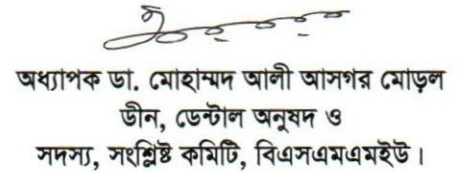 অধ্যাপক ডা. মোহাম্মদ আলী আসগর মোড়ল
ডীন, ডেন্টাল অনুষদ ও
সদস্য, সংশ্লিষ্ট কমিটি, বিএসএমএমইউ।